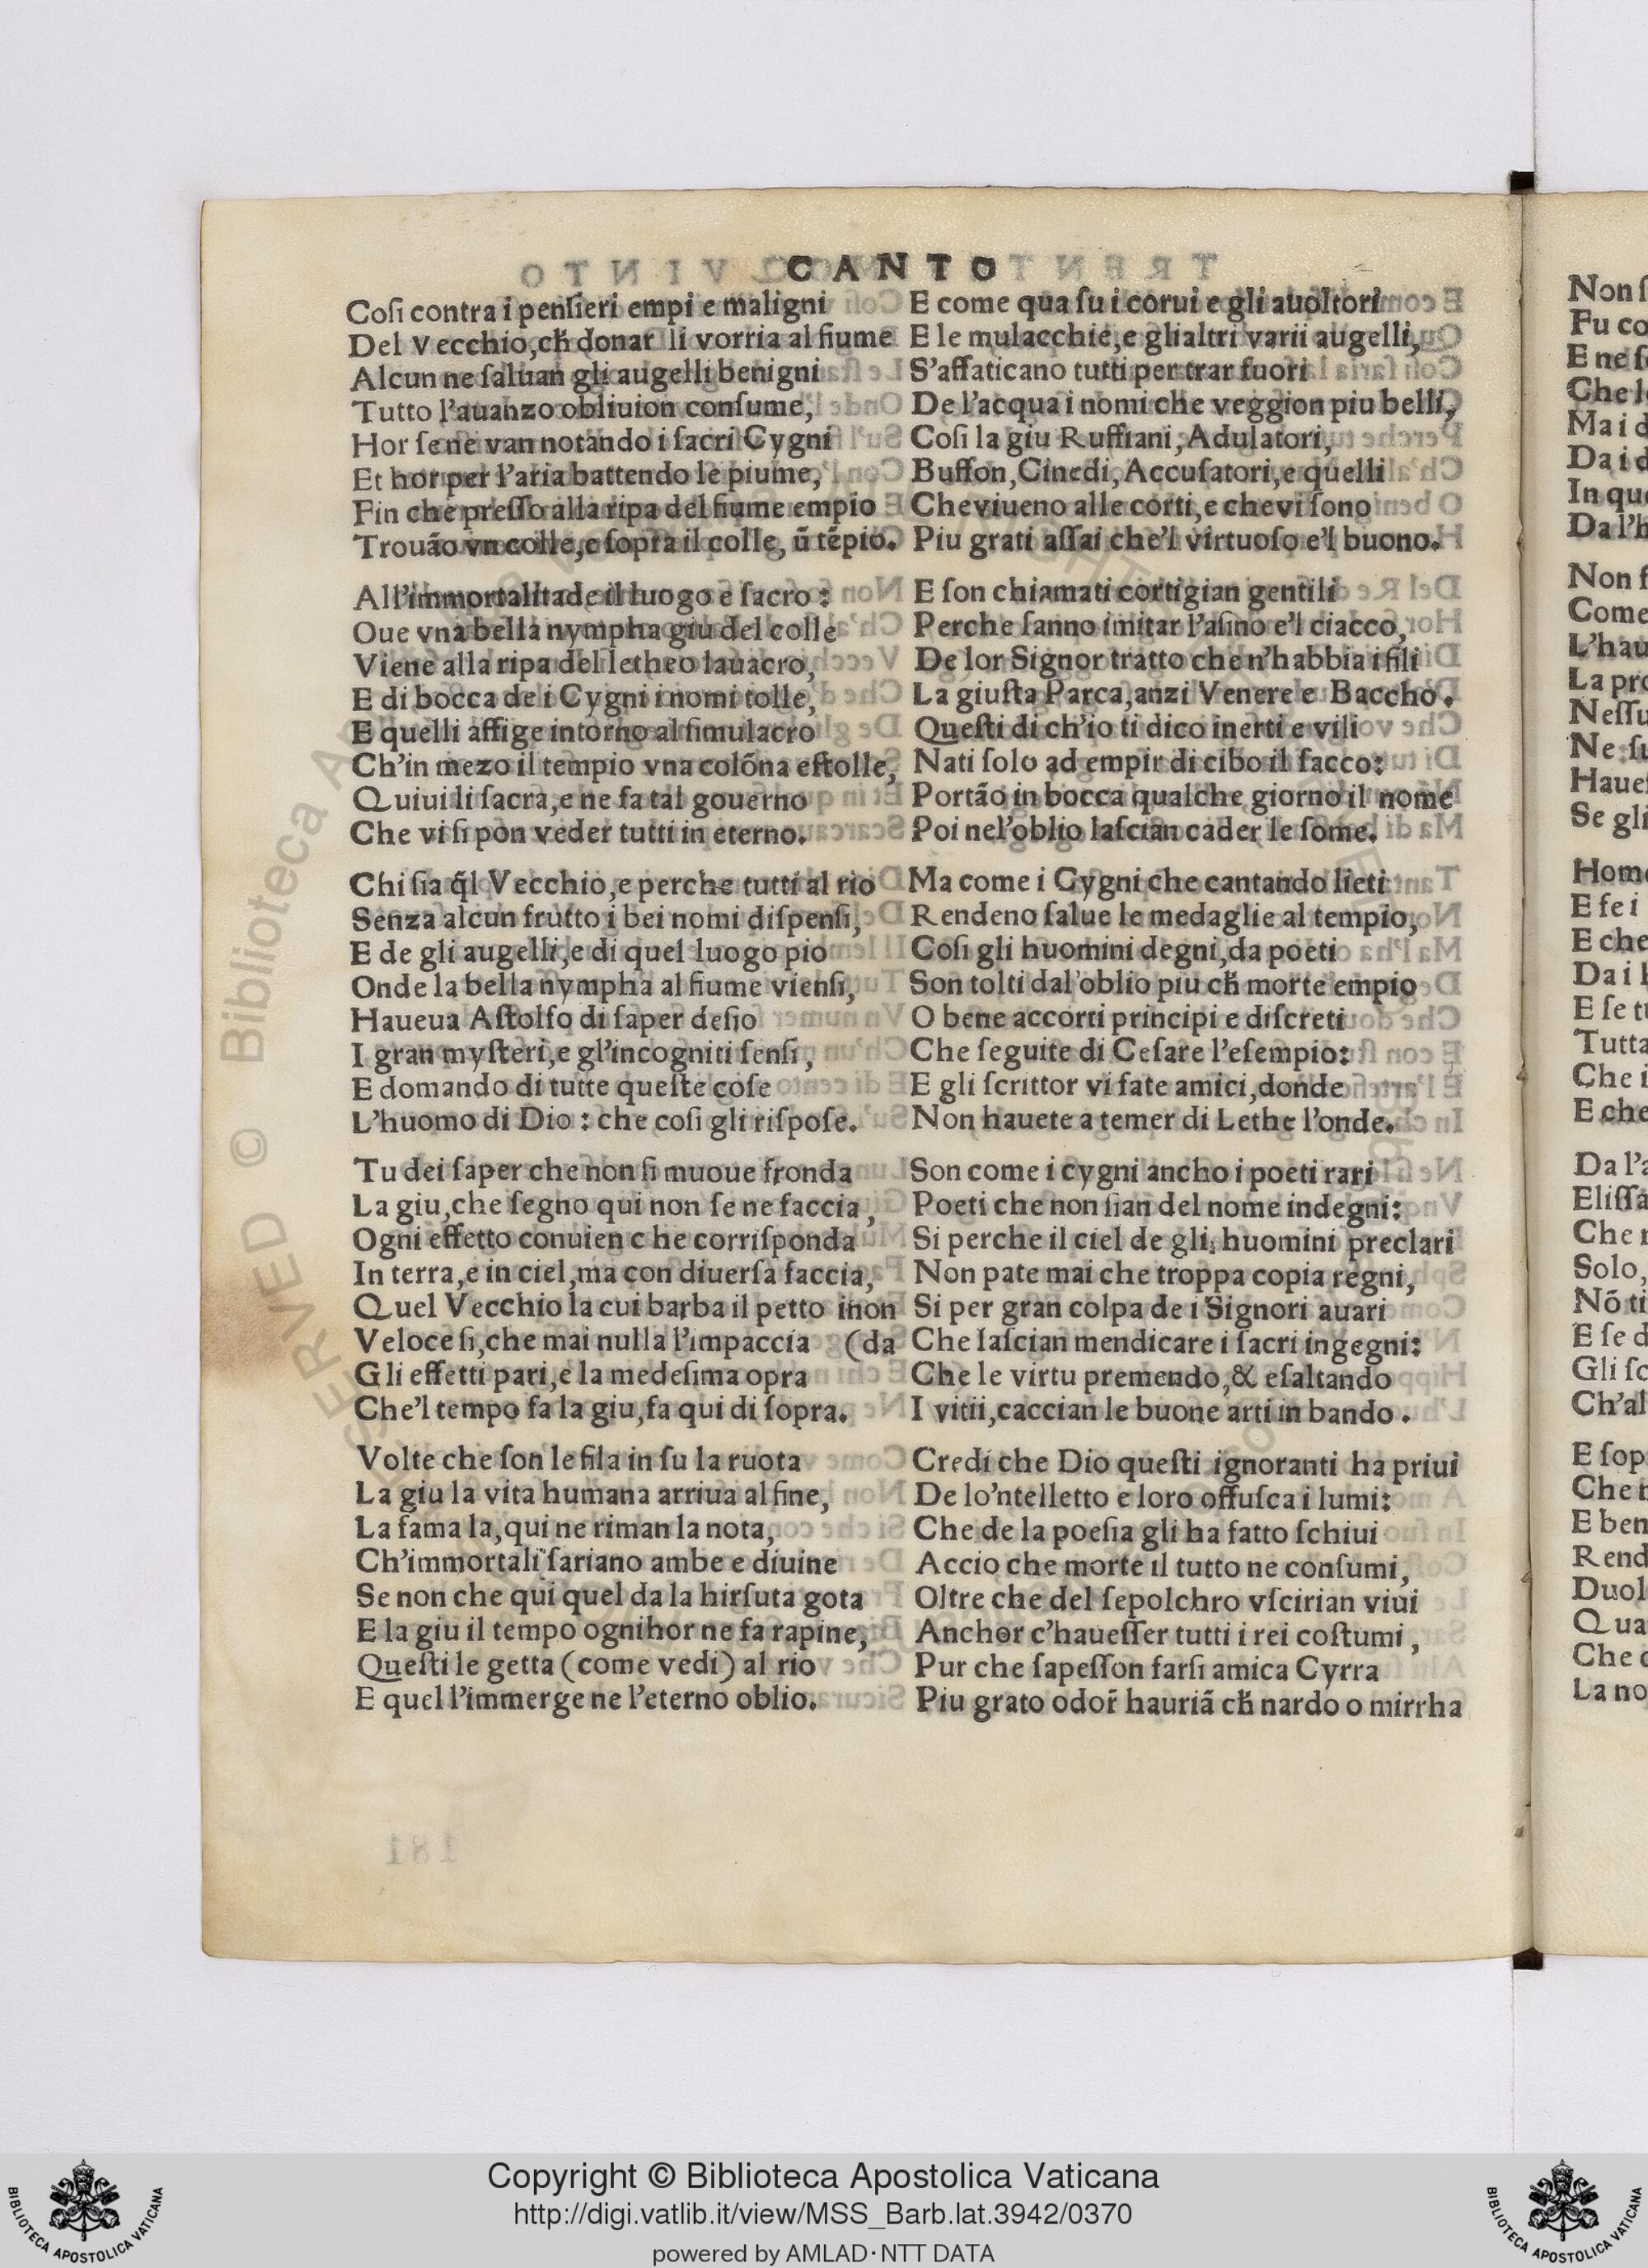 CANTO
Coſi contra i penſieri empi e maligni
Del Vecchio,ch̃ donar li vorria al fiume
Alcun ne ſaluan gli augelli benigni
Tutto l'auanzo obliuion conſume,
Hor ſe ne van notando i ſacri Cygni
Et hor per l'aria battendo le piume,
Fin che preſſo alla ripa del fiume empio
Trouão vn colle,e ſopra il colle, ũ tẽpio.
All'immortalitade il luogo e ſacro :
Oue vna bella nympha giu del colle
Viene alla ripa del letheo lauacro,
E di bocca de i Cygni i nomi tolle,
E quelli affige intorno al ſimulacro
Ch'in mezo il tempio vna colõna eſtolle,
Quiui li ſacra,e ne fa tal gouerno
Che vi ſi pon veder tutti in eterno.
Chi ſia q̃l Vecchio,e perche tutti al rio
Senza alcun frutto i bei nomi diſpenſi,
E de gli augelli,e di quel luogo pio
Onde la bella nympha al fiume vienſi,
Haueua Aſtolfo di ſaper deſio
I gran myſteri,e gl'incogniti ſenſi,
E domando di tutte queſte coſe
L'huomo di Dio : che coſi gli riſpoſe.
Tu dei ſaper che non ſi muoue fronda
La giu,che ſegno qui non ſe ne faccia,
Ogni effetto conuien c he corriſponda
In terra,e in ciel,ma con diuerſa faccia,
Quel Vecchio la cui barba il petto inon
Veloce ſi,che mai nulla l'impaccia (da
Gli effetti pari,e la medeſima opra
Che'l tempo fa la giu,fa qui di ſopra.
Volte che ſon le fila in ſu la ruota
La giu la vita humana arriua al fine,
La fama la,qui ne riman la nota,
Ch'immortali ſariano ambe e diuine
Se non che qui quel da la hirſuta gota
E la giu il tempo ognihor ne fa rapine,
Queſti le getta (come vedi) al rio
E quel l'immerge ne l'eterno oblio.
E come qua ſu i corui e gli auoltori
E le mulacchie,e glialtri varii augelli,
S'affaticano tutti per trar fuori
De l'acqua i nomi che veggion piu belli,
Coſi la giu Ruffiani,Adulatori,
Buffon,Cinedi,Accuſatori,e quelli
Che viueno alle corti,e che vi ſono
Piu grati aſſai che'l virtuoſo e'l buono.
E ſon chiamati cortigian gentili
Perche ſanno imitar l'aſino e'l ciacco,
De lor Signor tratto che n'habbia i fili
La giuſta Parca,anzi Venere e Baccho.
Queſti di ch'io ti dico inerti e vili
Nati ſolo ad empir di cibo il ſacco:
Portão in bocca qualche giorno il nome
Poi nel'oblio laſcian cader le ſome.
Ma come i Cygni che cantando lieti
Rendeno ſalue le medaglie al tempio,
Coſi gli huomini degni,da poeti
Son tolti dal'oblio piu ch̃ morte empio
O bene accorti principi e diſcreti
Che ſeguite di Ceſare l'eſempio:
E gli ſcrittor vi fate amici,donde
Non hauete a temer di Lethe l'onde.
Son come i cygni ancho i poeti rari
Poeti che non ſian del nome indegni:
Si perche il ciel de gli huomini preclari
Non pate mai che troppa copia regni,
Si per gran colpa de i Signori auari
Che laſcian mendicare i ſacri ingegni:
Che le virtu premendo,& eſaltando
I vitii,caccian le buone arti in bando.
Credi che Dio queſti ignoranti ha priui
De lo'ntelletto e loro offuſca i lumi:
Che de la poeſia gli ha fatto ſchiui
Accio che morte il tutto ne conſumi,
Oltre che del ſepolchro vſcirian viui
Anchor c'haueſſer tutti i rei coſtumi,
Pur che ſapeſſon farſi amica Cyrra
Piu grato odor̃ hauriã ch̃ nardo o mirrha
Fu co
Che i
E che
Da l'a
Solo,
Nõ ti
Gli ſc
Ch'al
E ſop
E ben
Rend
Duol
Qua
La no
Copyright © Biblioteca Apostolica Vaticana
http://digi.vatlib.it/view/MSS_Barb.lat.3942/0370
powered by AMLAD·NTT DATA
BIBLIOTECA APOSTOLICA VATICANA
BIBLIOTECA APOSTOLICA VATICANA